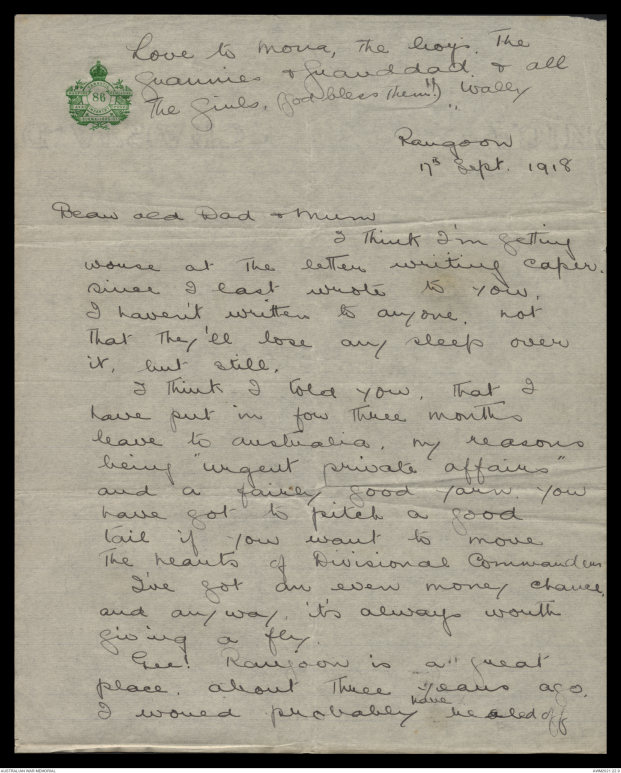 Love to Mona, the boys. The
Grannies & Granddad. & all
the Girls, (God bless them!!) Wally
86
Rangoon
17th Sept. 1918
Dear old Dad & Mum
I think I'm getting
worse at the letter writing caper.
since I last wrote to you,
I haven't written to anyone. not
that they'll lose any sleep over
it, but still.
I think I told you, that I
have put in for three months
leave to australia, my reasons
being "urgent private affairs"
and a fairly good yarn. you
have got to pitch a good
tail if you want to move
the hearts of Divisional Commanders
I've got an even money chance,
and anyway, it's always worth
giving a fly.
Gee! Rangoon is a "great
place. about three years ago.
I would probably have headed off
AUSTRALIAN WAR MEMORIAL